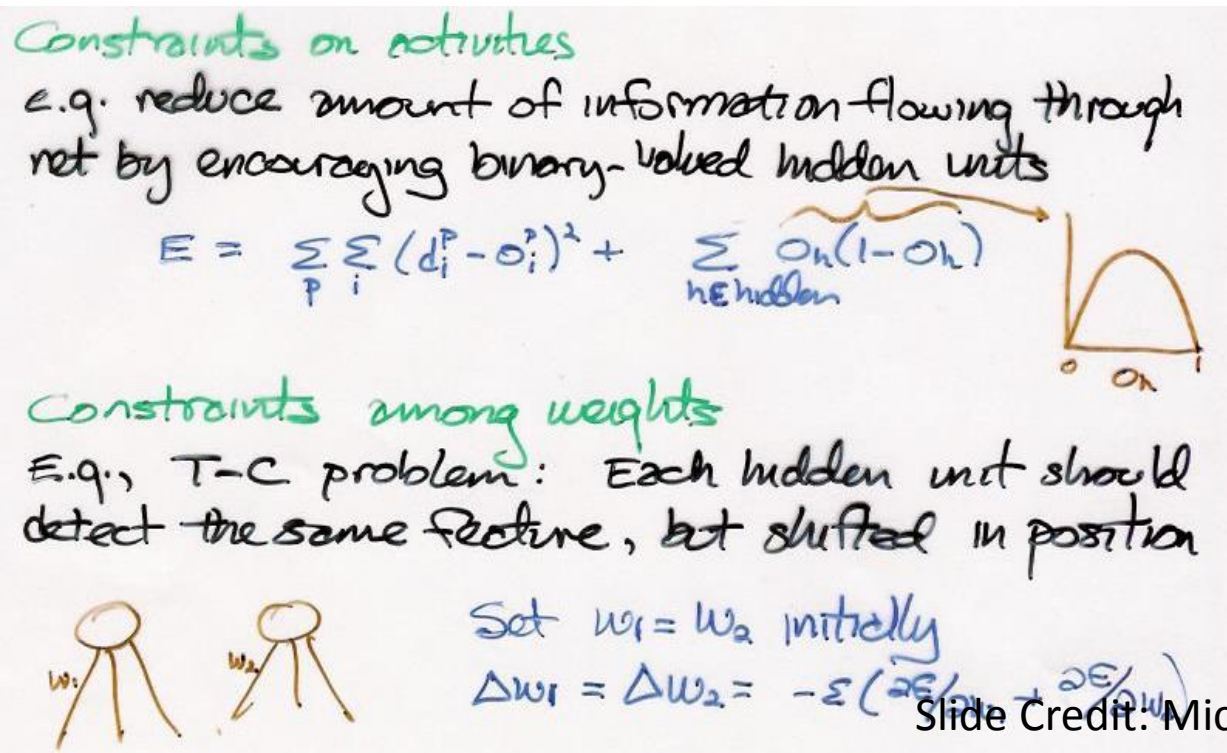 Constraints on activities
e.g. reduce amount of information flowing through
net by encouraging binary-valued hidden units
E = Σ_p Σ_i (d_i^p - o_i^p)² + Σ_{h∈hidden} o_h(1-o_h)
0 o_h 1
Constraints among weights
E.g., T-C problem: Each hidden unit should
detect the same feature, but shifted in position
w₁ w₂
Set w₁ = w₂ initially
Δw₁ = Δw₂ = -ε(∂E/∂w₁ + ∂E/∂w₂)
Slide Credit: Mic